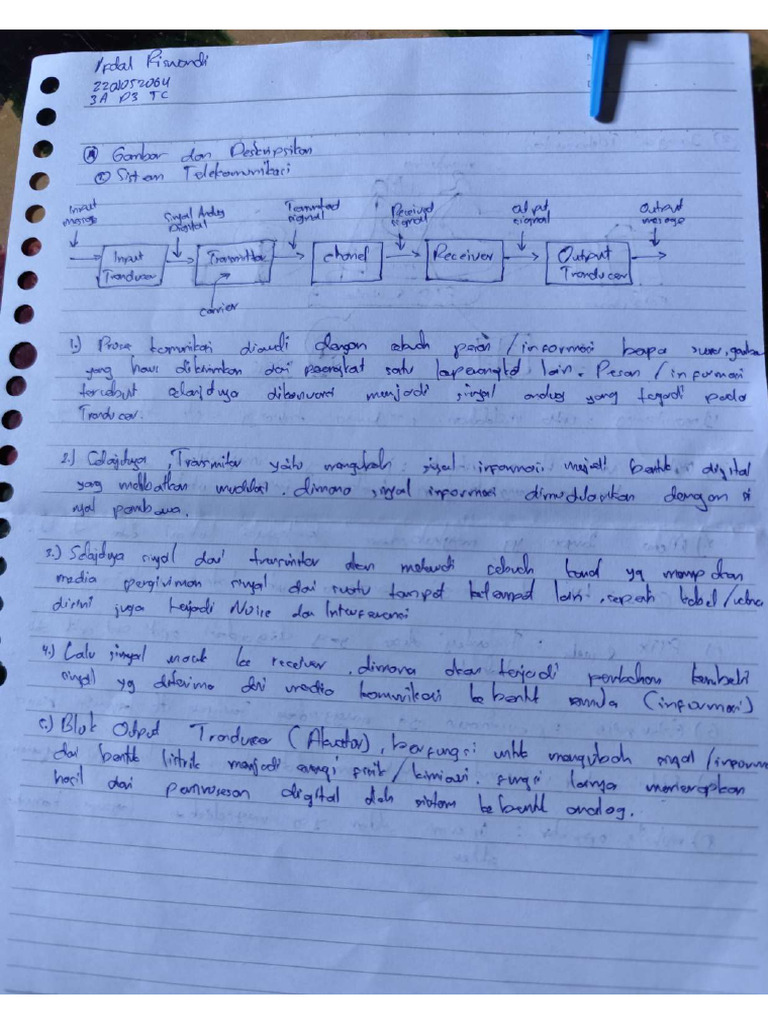 Afdal Riswandi
220105206U
3A D3 TC
(A) Gambar dan Deskripsikan
① Sistem Telekomunikasi
Input message
Sinyal Analog Digital
Transmitted signal
Received signal
Output signal
Output message
Input Tranducer
Transmitter
Chanel
Receiver
Output Tranducer
carrier
1.) Proses komunikasi diawali dengan sebuah pesan / informasi berupa suara, gambar
yang harus dikirimkan dari perangkat satu ke perangkat lain. Pesan / informasi
tersebut selanjutnya dikonversi menjadi sinyal analog yang terjadi pada
Tranducer.
2.) Selanjutnya, Transmiter yaitu mengubah sinyal informasi menjadi bentuk digital
yang melibatkan modulasi. dimana sinyal informasi dimodulasikan dengan si
nyal pembawa.
3.) Selanjutnya sinyal dari transmitor akan melewati sebuah kanal yg merupakan
media pengiriman sinyal dari suatu tempat ketempat lain, seperti kabel/udara
disini juga terjadi Noise dan Interferensi
4.) Lalu sinyal masuk ke receiver. dimana akan terjadi perubahan kembali
sinyal yg diterima dari media komunikasi ke bentuk semula (informasi)
5.) Blok Output Tranducer (Aktuator), berfungsi untuk mengubah sinyal/informasi
dari bentuk listrik menjadi energi fisik/kimiawi. fungsi lainya menerapkan
hasil dari pemrosesan digital oleh sistem ke bentuk analog.